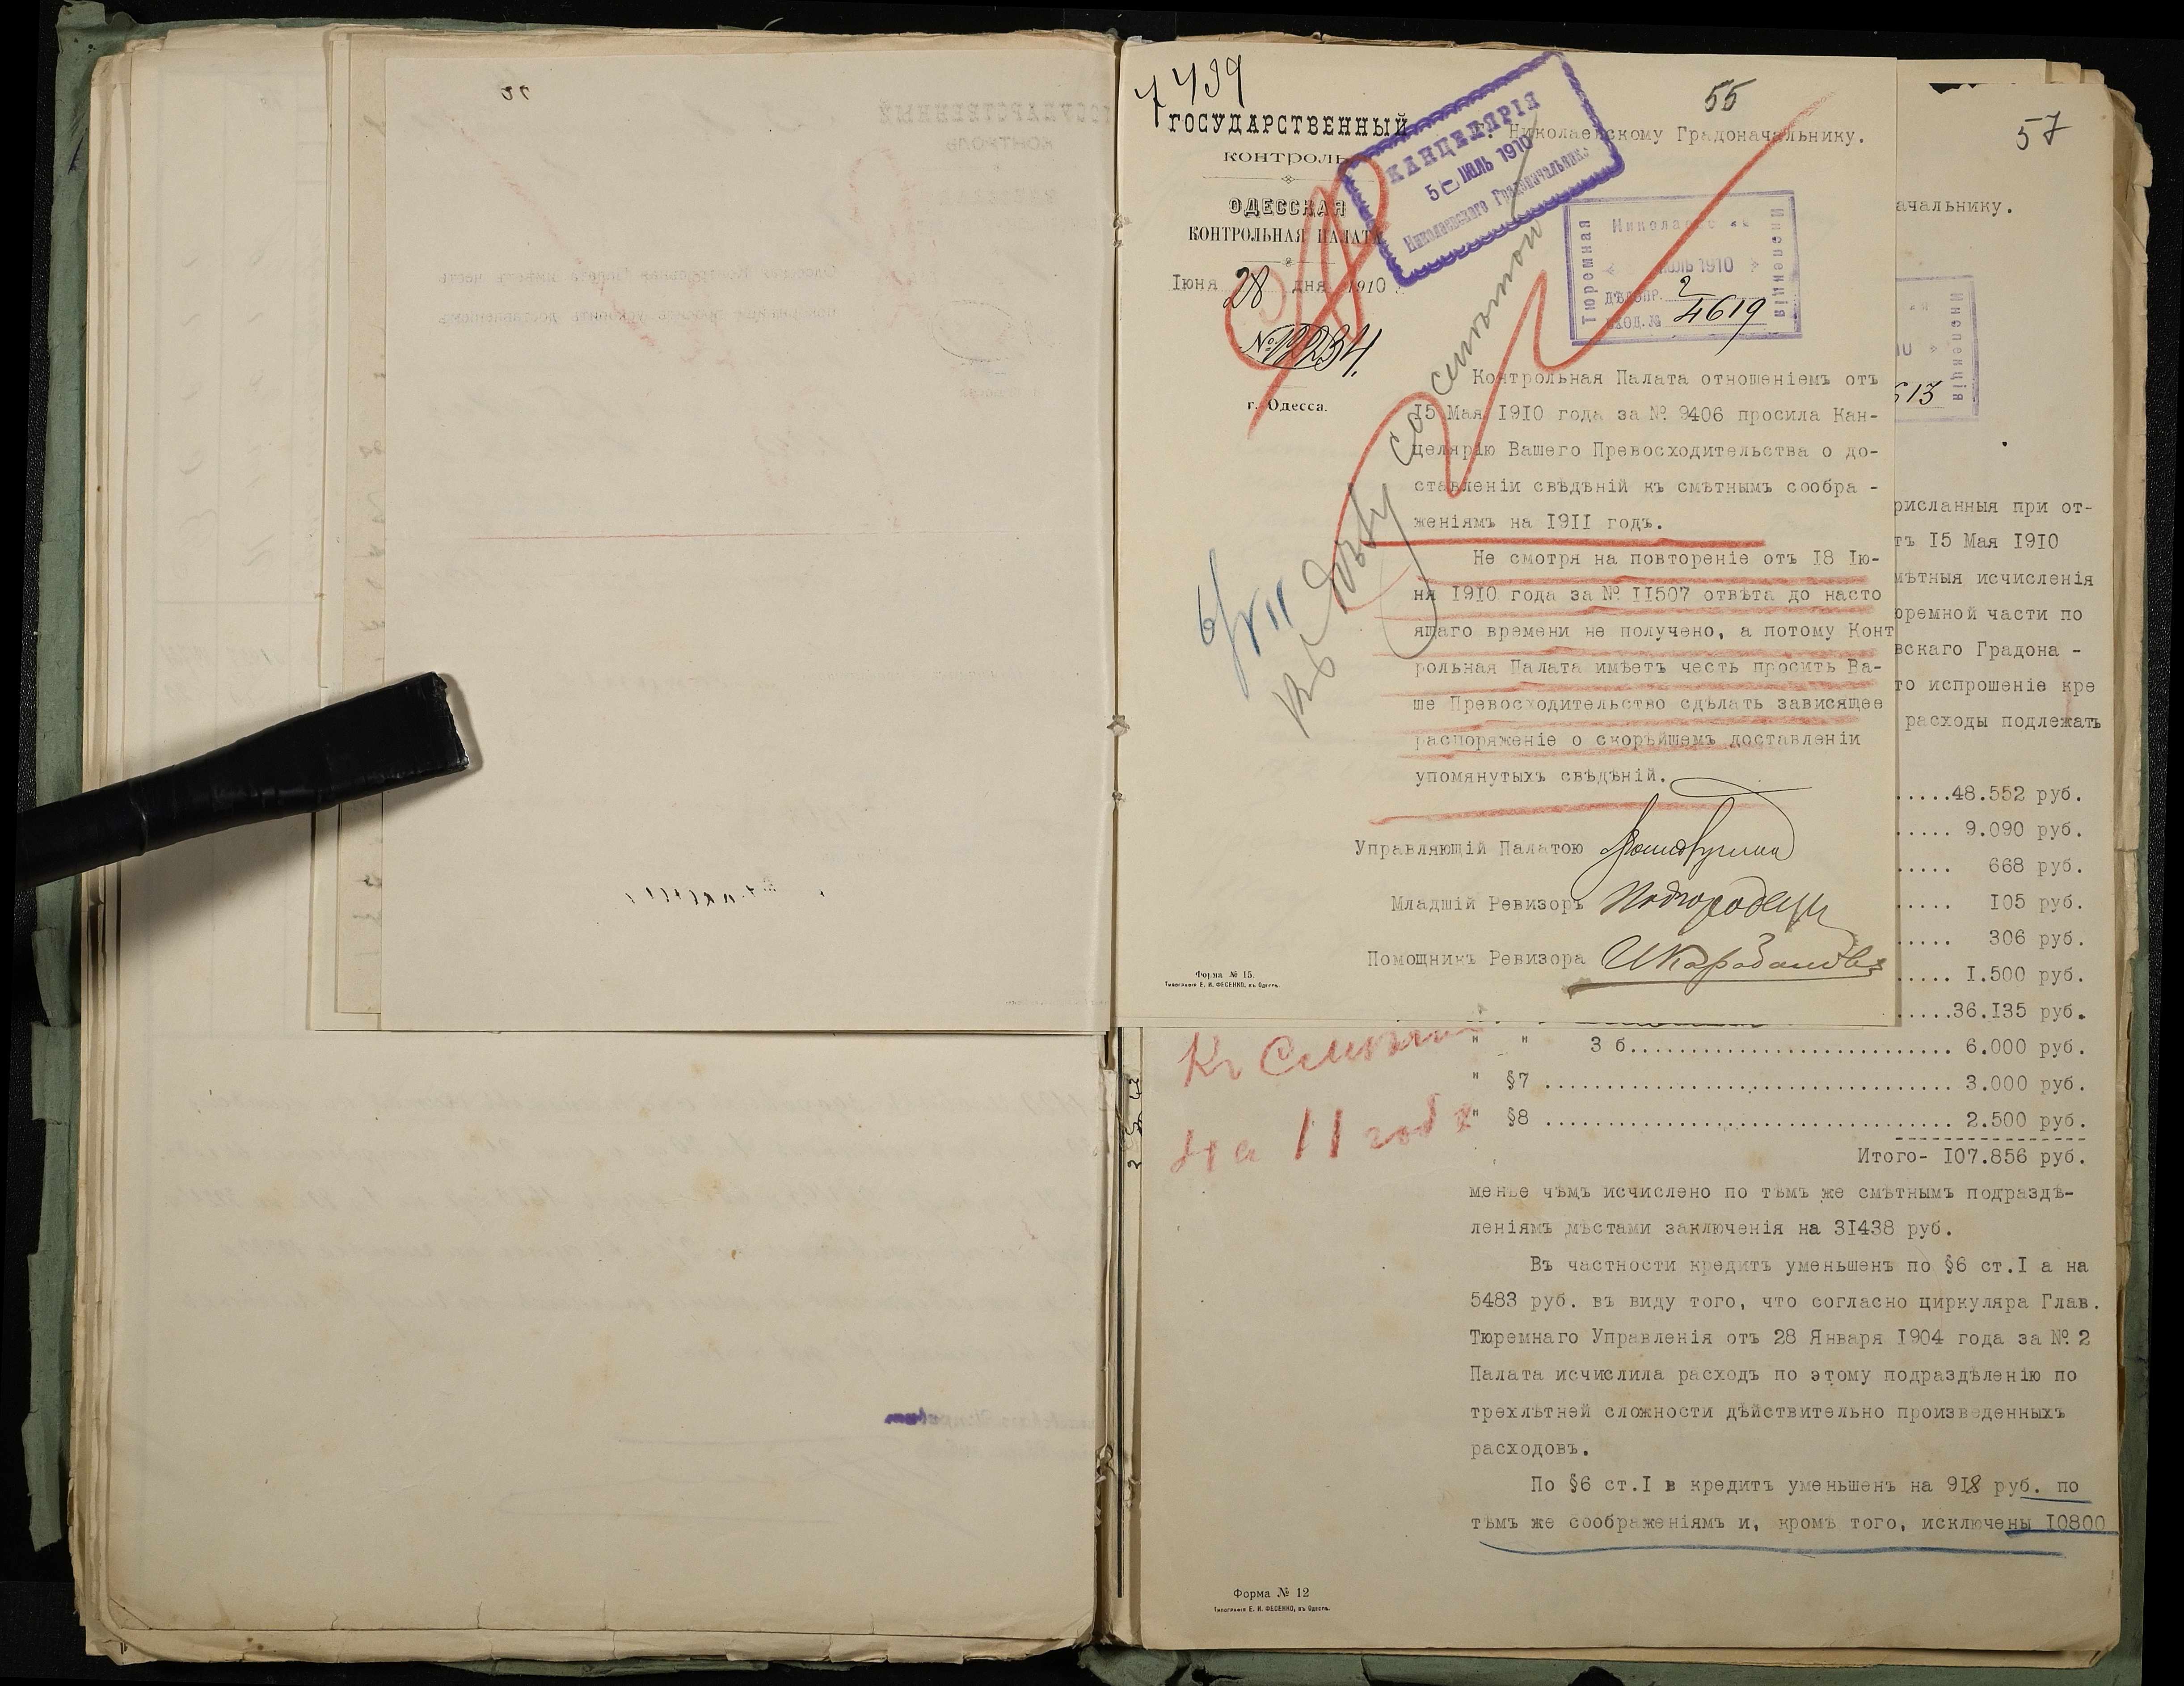 7439
55
ГОСУДАРСТВЕННЫЙ
КОНТРОЛЬ
ОДЕССКАЯ
КОНТРОЛЬНАЯ ПАЛАТА
Іюня 28 дня 1910
№ 12234.
г. Одесса.
Николаевскому Градоначальнику.
КАНЦЕЛЯРІЯ
5 ІЮЛЬ 1910
Николаевскаго Градоначальника
Тюремная
Инспекція
Николаевс
ІЮЛЬ 1910
ДѢЛОПР. 2
ВХОД. № 4619
Къ дѣлу со смѣтой
6/VII
Контрольная Палата отношеніемъ отъ
15 Мая 1910 года за № 9406 просила Кан-
целярію Вашего Превосходительства о до-
ставленіи свѣдѣній къ смѣтнымъ сообра -
женіямъ на 1911 годъ.
Не смотря на повтореніе отъ 18 Ію-
ня 1910 года за № 11507 отвѣта до насто
ящаго времени не получено, а потому Конт
рольная Палата имѣетъ честь просить Ва-
ше Превосходительство сдѣлать зависящее
распоряженіе о скорѣйшемъ доставленіи
упомянутыхъ свѣдѣній.
Управляющій Палатою
Младшій Ревизоръ
Помощникъ Ревизора
Форма № 15.
Типографія Е. И. ФЕСЕНКО, въ Одессѣ.
57
ачальнику.
Инспекція
613
рисланныя при от-
тъ 15 Мая 1910
мѣтныя исчисленія
ремной части по
вскаго Градона -
то испрошеніе кре
расходы подлежать
.....48.552 руб.
..... 9.090 руб.
..... 668 руб.
..... 105 руб.
..... 306 руб.
..... 1.500 руб.
.....36.135 руб.
" " 3 б............................ 6.000 руб.
" §7 .................................. 3.000 руб.
" §8 .................................. 2.500 руб.
Итого- 107.856 руб.
Къ Смѣтѣ
на 11 годъ
менѣе чѣмъ исчислено по тѣмъ же смѣтнымъ подраздѣ-
леніямъ мѣстами заключенія на 31438 руб.
Въ частности кредитъ уменьшенъ по §6 ст.I а на
5483 руб. въ виду того, что согласно циркуляра Глав.
Тюремнаго Управленія отъ 28 Января 1904 года за № 2
Палата исчислила расходъ по этому подраздѣленію по
трехлѣтней сложности дѣйствительно произведенныхъ
расходовъ.
По §6 ст.I в кредитъ уменьшенъ на 918 руб. по
тѣмъ же соображеніямъ и, кромѣ того, исключены 10800
Форма № 12
Типографія Е. И. ФЕСЕНКО, въ Одессѣ.